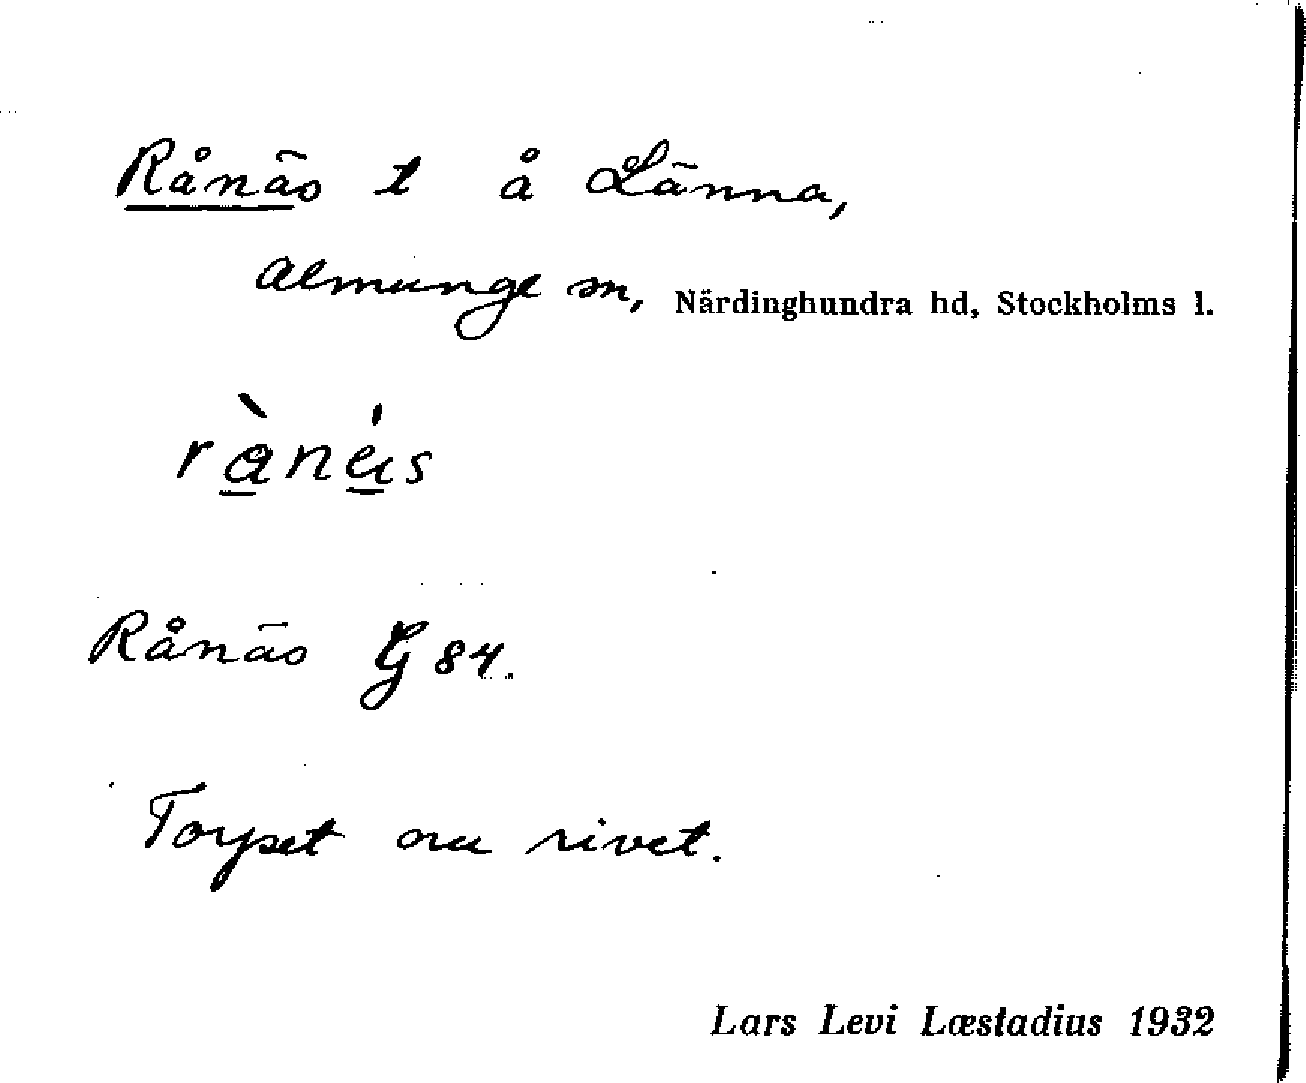 Rånäs t å Länna,
Almunge sn, Närdinghundra hd, Stockholms l.
rànä́s
Rånäs G 84.
Torpet nu rivet.
Lars Levi Læstadius 1932